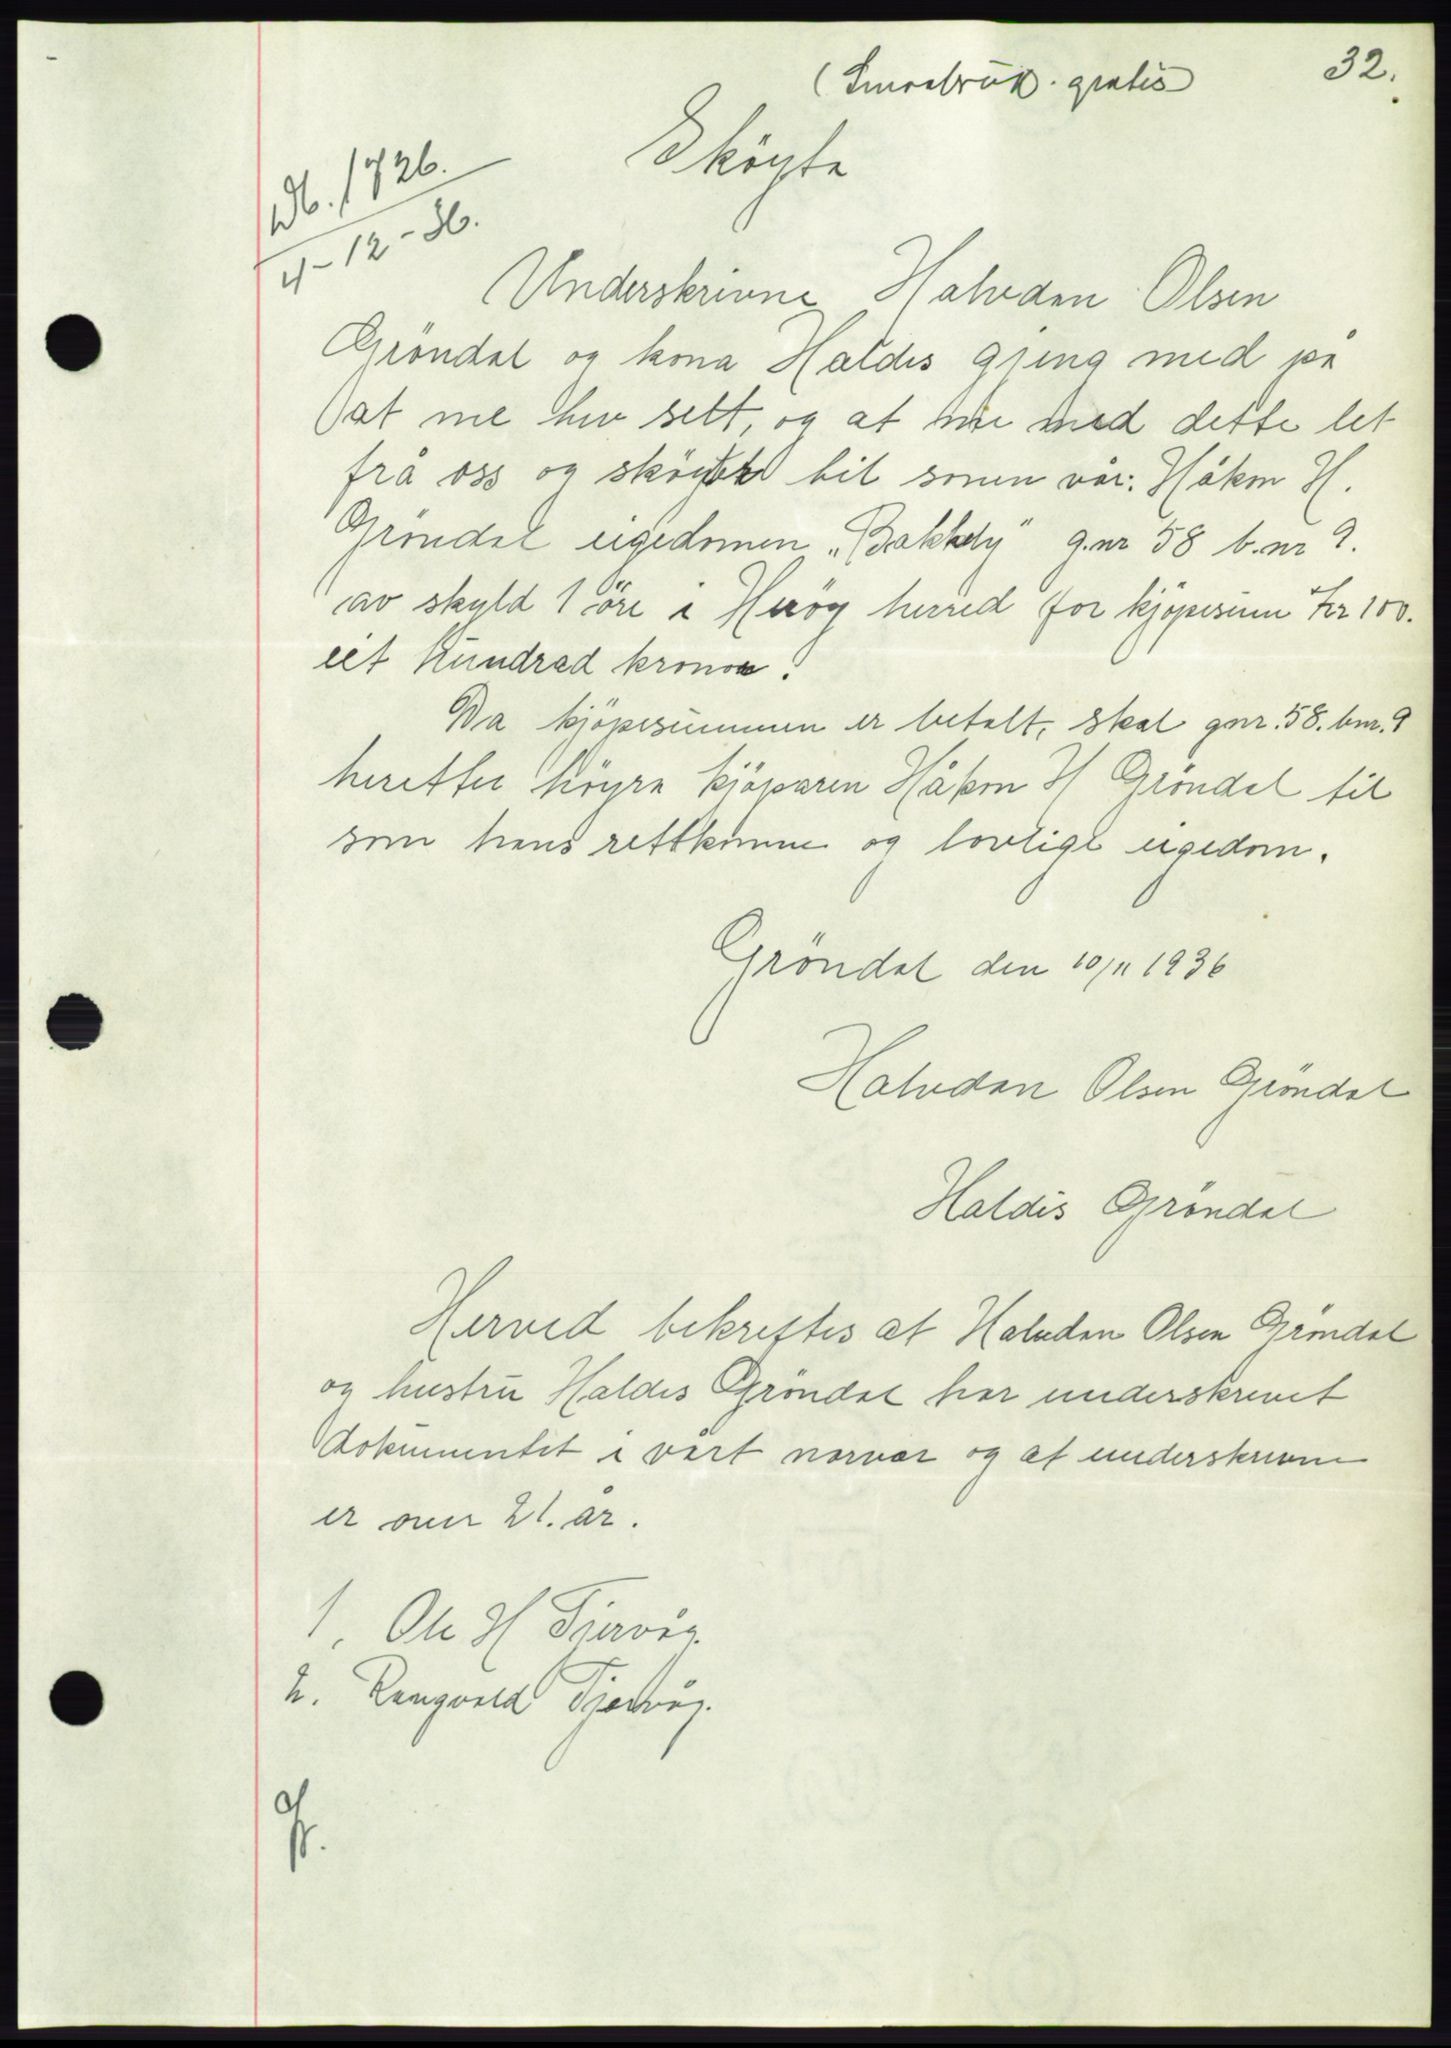 32.
(Smaabruk. gratis)
Sköyte
Db. 1726.
4-12-36.
Underskrivne Halvdan Olsen
Gröndal og kona Haldis gjeng med på
at me hev selt, og at me med dette let
frå oss og sköyter til sonen vår: Håkon H.
Gröndal eigedomen „Bakkely" g.nr 58 b.nr 9.
av skyld 1 öre i Heröy herred for kjöpesum kr 100.
eit hundrad kronor.
Da kjöpesummen er betalt, skal gnr. 58. bnr. 9
heretter höyra kjöparen Håkon H Gröndal til
som hans rettkomne og lovlige eigedom.
Gröndal den 10/11 1936
Halvdan Olsen Gröndal
Haldis Gröndal
Herved bekreftes at Halvdan Olsen Gröndal
og hustru Haldis Gröndal har underskrevet
dokumentet i vårt nærvær og at underskrivne
er over 21. år.
1. Ole H Tjervåg.
2. Rangvald Tjervåg.